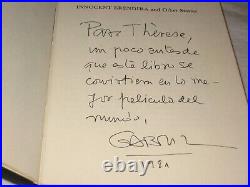 INNOCENT ERENDIRA and Other Stories
Para Thérèse,
un poco antes de
que este libro se
convirtiera en la me
jor película del
mundo,
1981